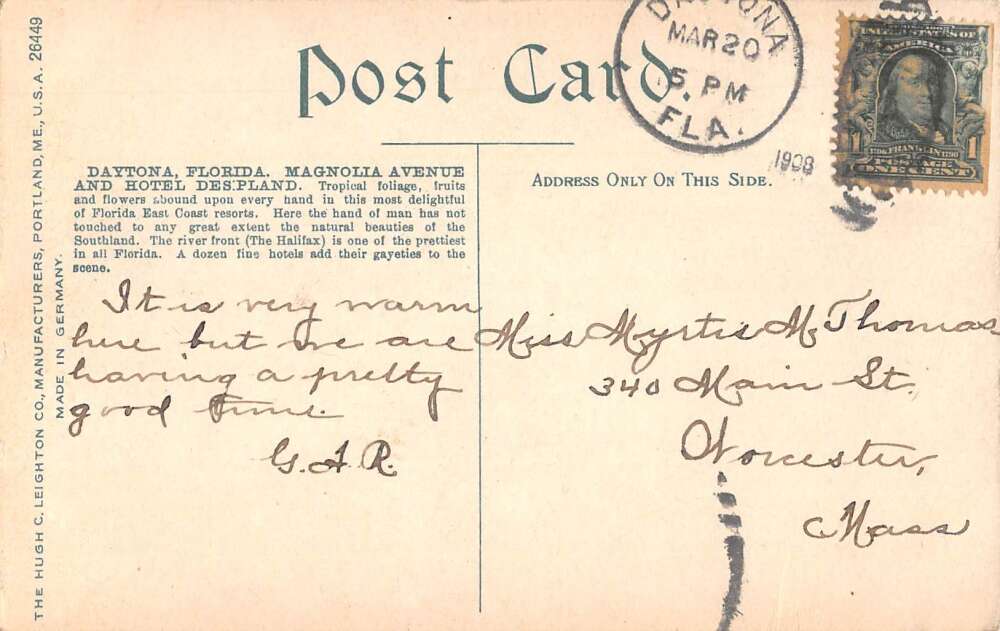 THE HUGH C. LEIGHTON CO., MANUFACTURERS, PORTLAND, ME., U.S.A. 26449
MADE IN GERMANY.
Post Card
DAYTONA
MAR 20
5. PM
FLA.
1908
UNITED STATES OF
AMERICA
1 1706 FRANKLIN 1790 1
POSTAGE
ONE CENT
DAYTONA, FLORIDA. MAGNOLIA AVENUE
AND HOTEL DES:PLAND. Tropical foliage, fruits
and flowers abound upon every hand in this most delightful
of Florida East Coast resorts. Here the hand of man has not
touched to any great extent the natural beauties of the
Southland. The river front (The Halifax) is one of the prettiest
in all Florida. A dozen fine hotels add their gayeties to the
scene.
ADDRESS ONLY ON THIS SIDE.
It is very warm
here but we are
having a pretty
good time.
G. A. R.
Miss Myrtis M. Thomas
340 Main St.
Worcester,
Mass